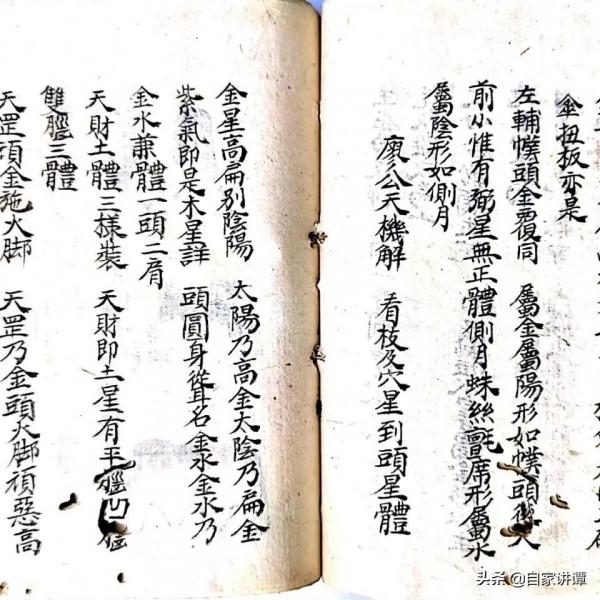 傘扭板亦是
左輔幞頭金覆同 屬金屬陽形如幞頭後大
前小惟有弼星無正體側月蛛絲氈席形屬水
屬陰形如側月
廖公天機解 看枝及穴星到頭星體
金星高扁別陰陽 太陽乃高金太陰乃扁金
紫氣即是木星詳 頭圓身聳名金水金水乃
金水兼體一頭二肩
天財土體三樣裝 天財即土星有平腦凹腦
雙腦三體
天罡頂金拖火脚 天罡乃金頭火脚頑惡高
头条 @自家讲谭